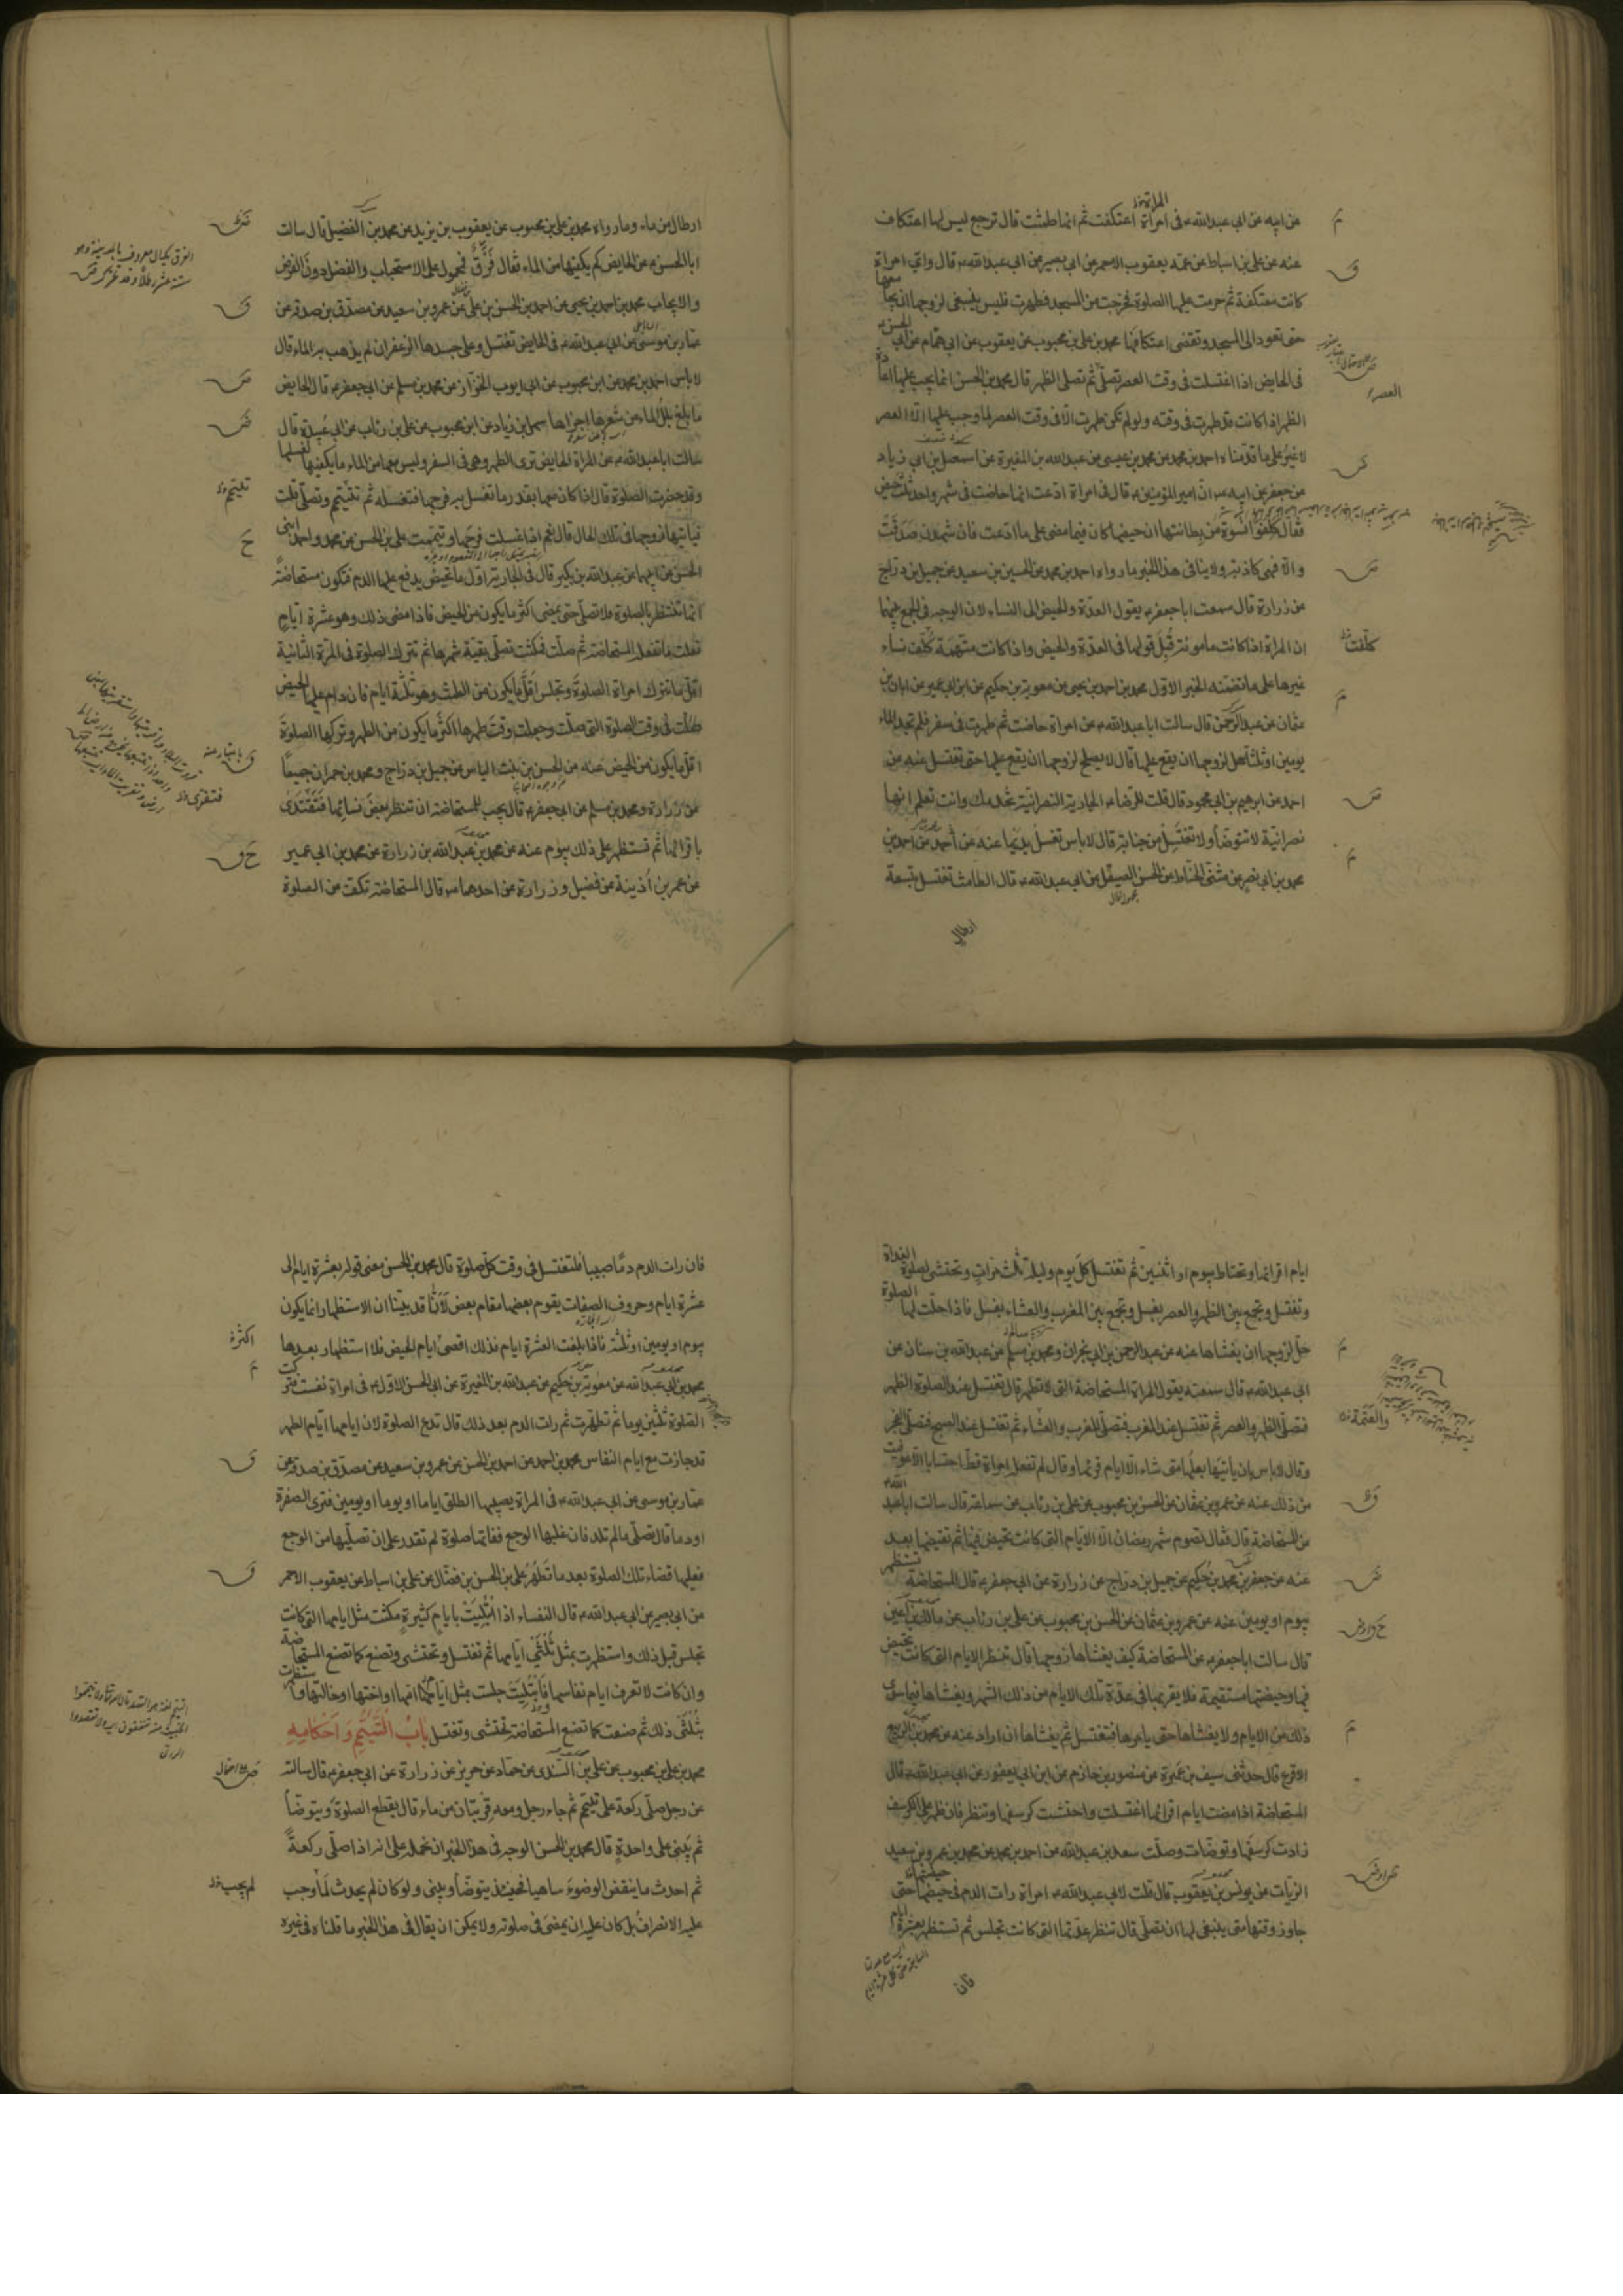 عن ابيه عن ابي عبد الله ع في امراة اعتكفت ثم انها طمثت قال ترجع ليس لها اعتكاف
عنه عن علي بن اسباط عن عمه يعقوب الاحمر عن ابي بصير عن ابي عبد الله ع قال واي امراة
كانت معتكفة ثم حرمت عليها الصلوة فخرجت من المسجد فطهرت فليس ينبغي لزوجها ان يجامعها
حتى تعود الى المسجد وتقضي اعتكافها محمد بن علي بن محبوب عن يعقوب عن ابي همام عن ابي الحسن ع
في الحايض اذا اغتسلت في وقت العصر تصلي ثم تصلي الظهر قال محمد بن الحسن انما يجب عليها اعادة
الظهر اذا كانت قد طهرت في وقته ولو لم تكن طهرت الا في وقت العصر لما وجب عليها الا العصر
لا غير على ما قدمناه احمد بن محمد عن محمد بن عيسى عن عبد الله بن المغيرة عن اسمعيل بن ابي زياد
عن جعفر عن ابيه ع ان امير المؤمنين ع قال في امراة ادعت انها حاضت في شهر واحد ثلث حيض
فقال كلفوا نسوة من بطانتها ان حيضها كان فيما مضى على ما ادعت فان شهدن صدقت
والا فهي كاذبة ولا ينافي هذا الخبر ما رواه احمد بن محمد عن الحسين بن سعيد عن جميل بن دراج
عن زرارة قال سمعت ابا جعفر ع يقول العدة والحيض الى النساء لان الوجه في الجمع بينهما
ان المراة اذا كانت مامونة قبل قولها في العدة والحيض واذا كانت متهمة كلف نساء
غيرها على ما تضمنه الخبر الاول محمد بن احمد بن يحيى عن معوية بن حكيم عن ابن ابي عمير عن ابان بن
عثمان عن عبد الرحمن قال سالت ابا عبد الله ع عن امراة حاضت ثم طهرت في سفر فلم تجد الماء
يومين او ثلثة هل لزوجها ان يقع عليها قال لا يصلح لزوجها ان يقع عليها حتى تغتسل عنه عن
احمد عن ابرهيم بن ابي محمود قال قلت للرضا ع الجارية النصرانية تخدمك وانت تعلم انها
نصرانية لا تتوضأ ولا تغتسل من جنابة قال لا باس تغسل يديها عنه عن احمد عن احمد بن
محمد بن ابي نصر عن مثنى الحناط عن الحسن الصيقل عن ابي عبد الله ع قال الطامث تغتسل بتسعة
ارطال
ارطال من ماء وما رواه محمد بن علي بن محبوب عن يعقوب بن يزيد عن محمد بن الفضيل قال سالت
ابا الحسن ع عن الحايض كم يكفيها من الماء فقال فرق فمحمول على الاستحباب والفضل دون الفرض
والايجاب محمد بن احمد بن يحيى عن احمد بن الحسن بن علي عن عمرو بن سعيد عن مصدق بن صدقة عن
عمار بن موسى عن ابي عبد الله ع في الحايض تغتسل وعلى جسدها الزعفران لم يذهب به الماء قال
لا باس احمد بن محمد عن ابن محبوب عن ابي ايوب الخزاز عن محمد بن مسلم عن ابي جعفر ع قال الحايض
ما بلغ بلل الماء من شعرها اجزاها سهل بن زياد عن ابن محبوب عن علي بن رئاب عن ابي عبيدة قال
سالت ابا عبد الله ع عن المراة الحايض ترى الطهر وهي في السفر وليس معها من الماء ما يكفيها لغسلها
وقد حضرت الصلوة قال اذا كان معها بقدر ما تغسل به فرجها فتغسله ثم تتيمم وتصلي قلت
فياتيها زوجها في تلك الحال قال نعم اذا غسلت فرجها وتيممت علي بن الحسن عن محمد واحمد ابني
الحسن عن ابيهما عن عبد الله بن بكير قال في الجارية اول ما تحيض يدفع عليها الدم فتكون مستحاضة
انها تنتظر بالصلوة فلا تصلي حتى يمضي اكثر ما يكون من الحيض فاذا مضى ذلك وهو عشرة ايام
فعلت ما تفعله المستحاضة ثم صلت فمكثت تصلي بقية شهرها ثم تترك الصلوة في المرة الثانية
اقل ما تترك امراة الصلوة وتجلس اقل ما يكون من الطمث وهو ثلثة ايام فان دام عليها الحيض
صلت في وقت الصلوة التي صلت وجعلت وقت طهرها اكثر ما يكون من الطهر وتركها الصلوة
اقل ما يكون من الحيض عنه عن الحسن بن بنت الياس عن جميل بن دراج ومحمد بن حمران جميعا
عن زرارة ومحمد بن مسلم عن ابي جعفر ع قال يجب للمستحاضة ان تنظر بعض نسائها فتقتدى
باقرائها ثم تستظهر على ذلك بيوم عنه عن محمد بن عبد الله بن زرارة عن محمد بن ابي عمير
عن عمر بن اذينة عن فضيل وزرارة عن احدهما ع قال المستحاضة تكف عن الصلوة
ايام اقرائها وتحتاط بيوم او اثنين ثم تغتسل كل يوم وليلة ثلث مرات وتحتشي لصلوة الغداة
وتغتسل وتجمع بين الظهر والعصر بغسل وتجمع بين المغرب والعشاء بغسل فاذا حلت لها الصلوة
حل لزوجها ان يغشاها عنه عن عبد الرحمن بن ابي نجران ومحمد بن سالم عن عبد الله بن سنان عن
ابي عبد الله ع قال سمعته يقول المراة المستحاضة التي لا تطهر قال تغتسل عند الصلوة الظهر
فتصلي الظهر والعصر ثم تغتسل عند المغرب فتصلي المغرب والعشاء ثم تغتسل عند الصبح فتصلي الفجر
وقال لا باس بان ياتيها بعلها متى شاء الا ايام قرئها وقال لم تفعله امراة قط احتسابا الا عوفيت
من ذلك عنه عن عمرو بن عثمان عن الحسن بن محبوب عن علي بن رئاب عن سماعة قال سالت ابا عبد الله ع
عن المستحاضة قال فقال تصوم شهر رمضان الا الايام التي كانت تحيض فيها ثم تقضيها بعد
عنه عن جعفر بن محمد بن حكيم عن جميل بن دراج عن زرارة عن ابي جعفر ع قال المستحاضة تستظهر
بيوم او يومين عنه عن عمرو بن عثمان عن الحسن بن محبوب عن علي بن رئاب عن مالك بن اعين
قال سالت ابا جعفر ع عن المستحاضة كيف يغشاها زوجها قال تنظر الايام التي كانت تحيض
فيها وحيضتها مستقيمة فلا يقربها في عدة تلك الايام من ذلك الشهر ويغشاها فيما سوى
ذلك من الايام ولا يغشاها حتى يامرها فتغتسل ثم يغشاها ان اراد عنه عن محمد بن الربيع
الاقرع قال حدثني سيف بن عميرة عن منصور بن حازم عن ابن ابي يعفور عن ابي عبد الله ع قال
المستحاضة اذا مضت ايام اقرائها اغتسلت واحتشت كرسفها وتنظر فان ظهر على الكرسف
زادت كرسفها وتوضات وصلت سعد بن عبد الله عن احمد بن محمد عن محمد بن عمرو بن سعيد
الزيات عن يونس بن يعقوب قال قلت لابي عبد الله ع امراة رات الدم في حيضها حتى
جاوز وقتها متى ينبغي لها ان تصلي قال تنظر عدتها التي كانت تجلس ثم تستظهر بعشرة ايام
فان
فان رات الدم دما صبيبا فلتغتسل في وقت كل صلوة قال محمد بن الحسن معنى قوله بعشرة ايام الى
عشرة ايام وحروف الصفات يقوم بعضها مقام بعض لانا قد بينا ان الاستظهار انما يكون
بيوم او يومين او ثلثة فاذا بلغت العشرة ايام فذلك اقصى ايام الحيض فلا استظهار بعدها
محمد بن ابي عبد الله عن معوية بن حكيم عن عبد الله بن المغيرة عن ابي الحسن الاول ع في امراة نفست فتركت
الصلوة ثلثين يوما ثم تطهرت ثم رات الدم بعد ذلك قال تدع الصلوة لان ايامها ايام الطهر
قد جازت مع ايام النفاس محمد بن احمد عن احمد بن الحسن عن عمرو بن سعيد عن مصدق بن صدقة عن
عمار بن موسى عن ابي عبد الله ع في المراة يصيبها الطلق اياما او يوما او يومين فترى الصفرة
او دما قال تصلي ما لم تلد فان غلبها الوجع ففاتها صلوة لم تقدر على ان تصليها من الوجع
فعليها قضاء تلك الصلوة بعد ما تطهر علي بن الحسن بن فضال عن علي بن اسباط عن يعقوب الاحمر
عن ابي بصير عن ابي عبد الله ع قال النفساء اذا ابتليت بايام كثيرة مكثت مثل ايامها التي كانت
تجلس قبل ذلك واستظهرت بمثل ثلثي ايامها ثم تغتسل وتحتشي وتصنع كما تصنع المستحاضة
وان كانت لا تعرف ايام نفاسها فابتليت جلست مثل ايام امها او اختها او خالتها واستظهرت
بثلثي ذلك ثم صنعت كما تصنع المستحاضة تحتشي وتغتسل باب التيمم واحكامه
محمد بن علي بن محبوب عن علي بن السندى عن حماد عن حريز عن زرارة عن ابي جعفر ع قال سالته
عن رجل صلى ركعة على تيمم ثم جاء رجل ومعه قربتان من ماء قال يقطع الصلوة ويتوضأ
ثم يبني على واحدة قال محمد بن الحسن الوجه في هذا الخبر ان نحمله على انه اذا صلى ركعة
ثم احدث ما ينقض الوضوء ساهيا فحينئذ يتوضأ ويبني ولو كان لم يحدث لما وجب
عليه الانصراف بل كان عليه ان يمضي في صلوته ولا يمكن ان يقال في هذا الخبر ما قلناه في غيره